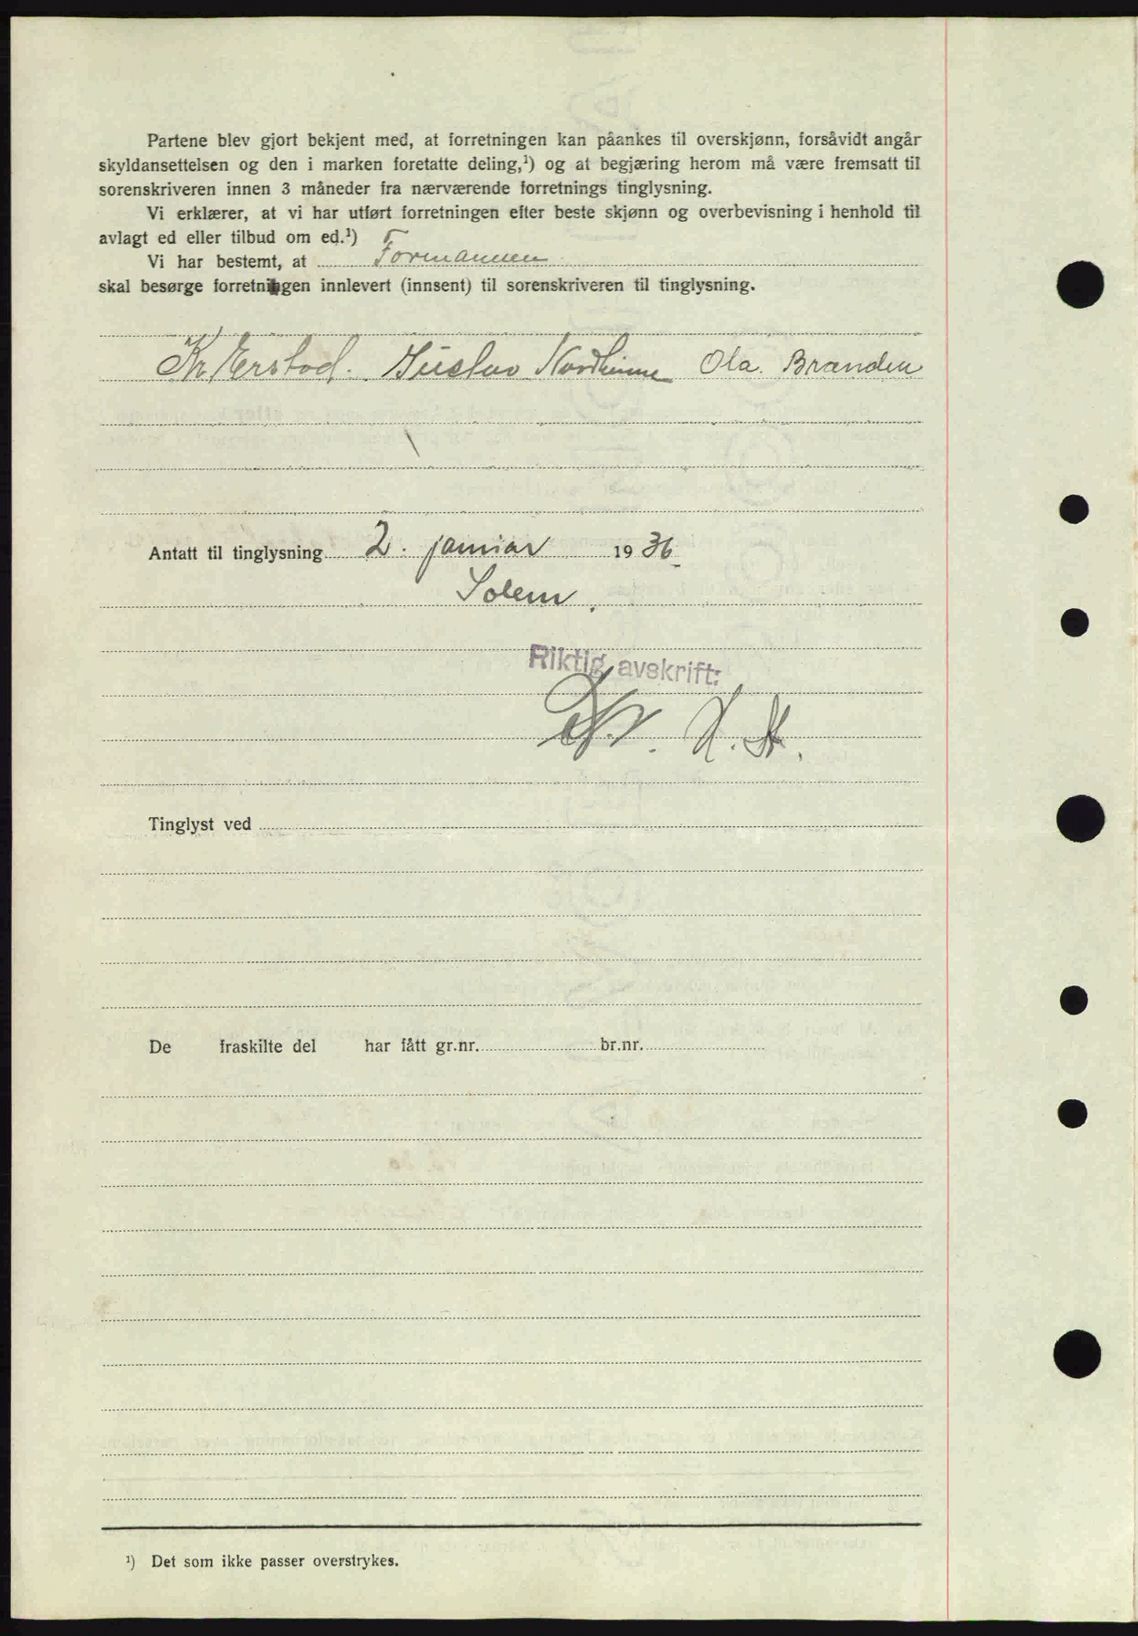 Partene blev gjort bekjent med, at forretningen kan påankes til overskjønn, forsåvidt angår
skyldansettelsen og den i marken foretatte deling,¹) og at begjæring herom må være fremsatt til
sorenskriveren innen 3 måneder fra nærværende forretnings tinglysning.
Vi erklærer, at vi har utført forretningen efter beste skjønn og overbevisning i henhold til
avlagt ed eller tilbud om ed.¹)
Vi har bestemt, at Formannen
skal besørge forretningen innlevert (innsent) til sorenskriveren til tinglysning.
Kr Erstad. Gustav Nordhime Ola. Branden
Antatt til tinglysning 2. januar 1936
Solem.
Riktig avskrift:
Tinglyst ved
De fraskilte del har fått gr.nr. br.nr.
¹) Det som ikke passer overstrykes.